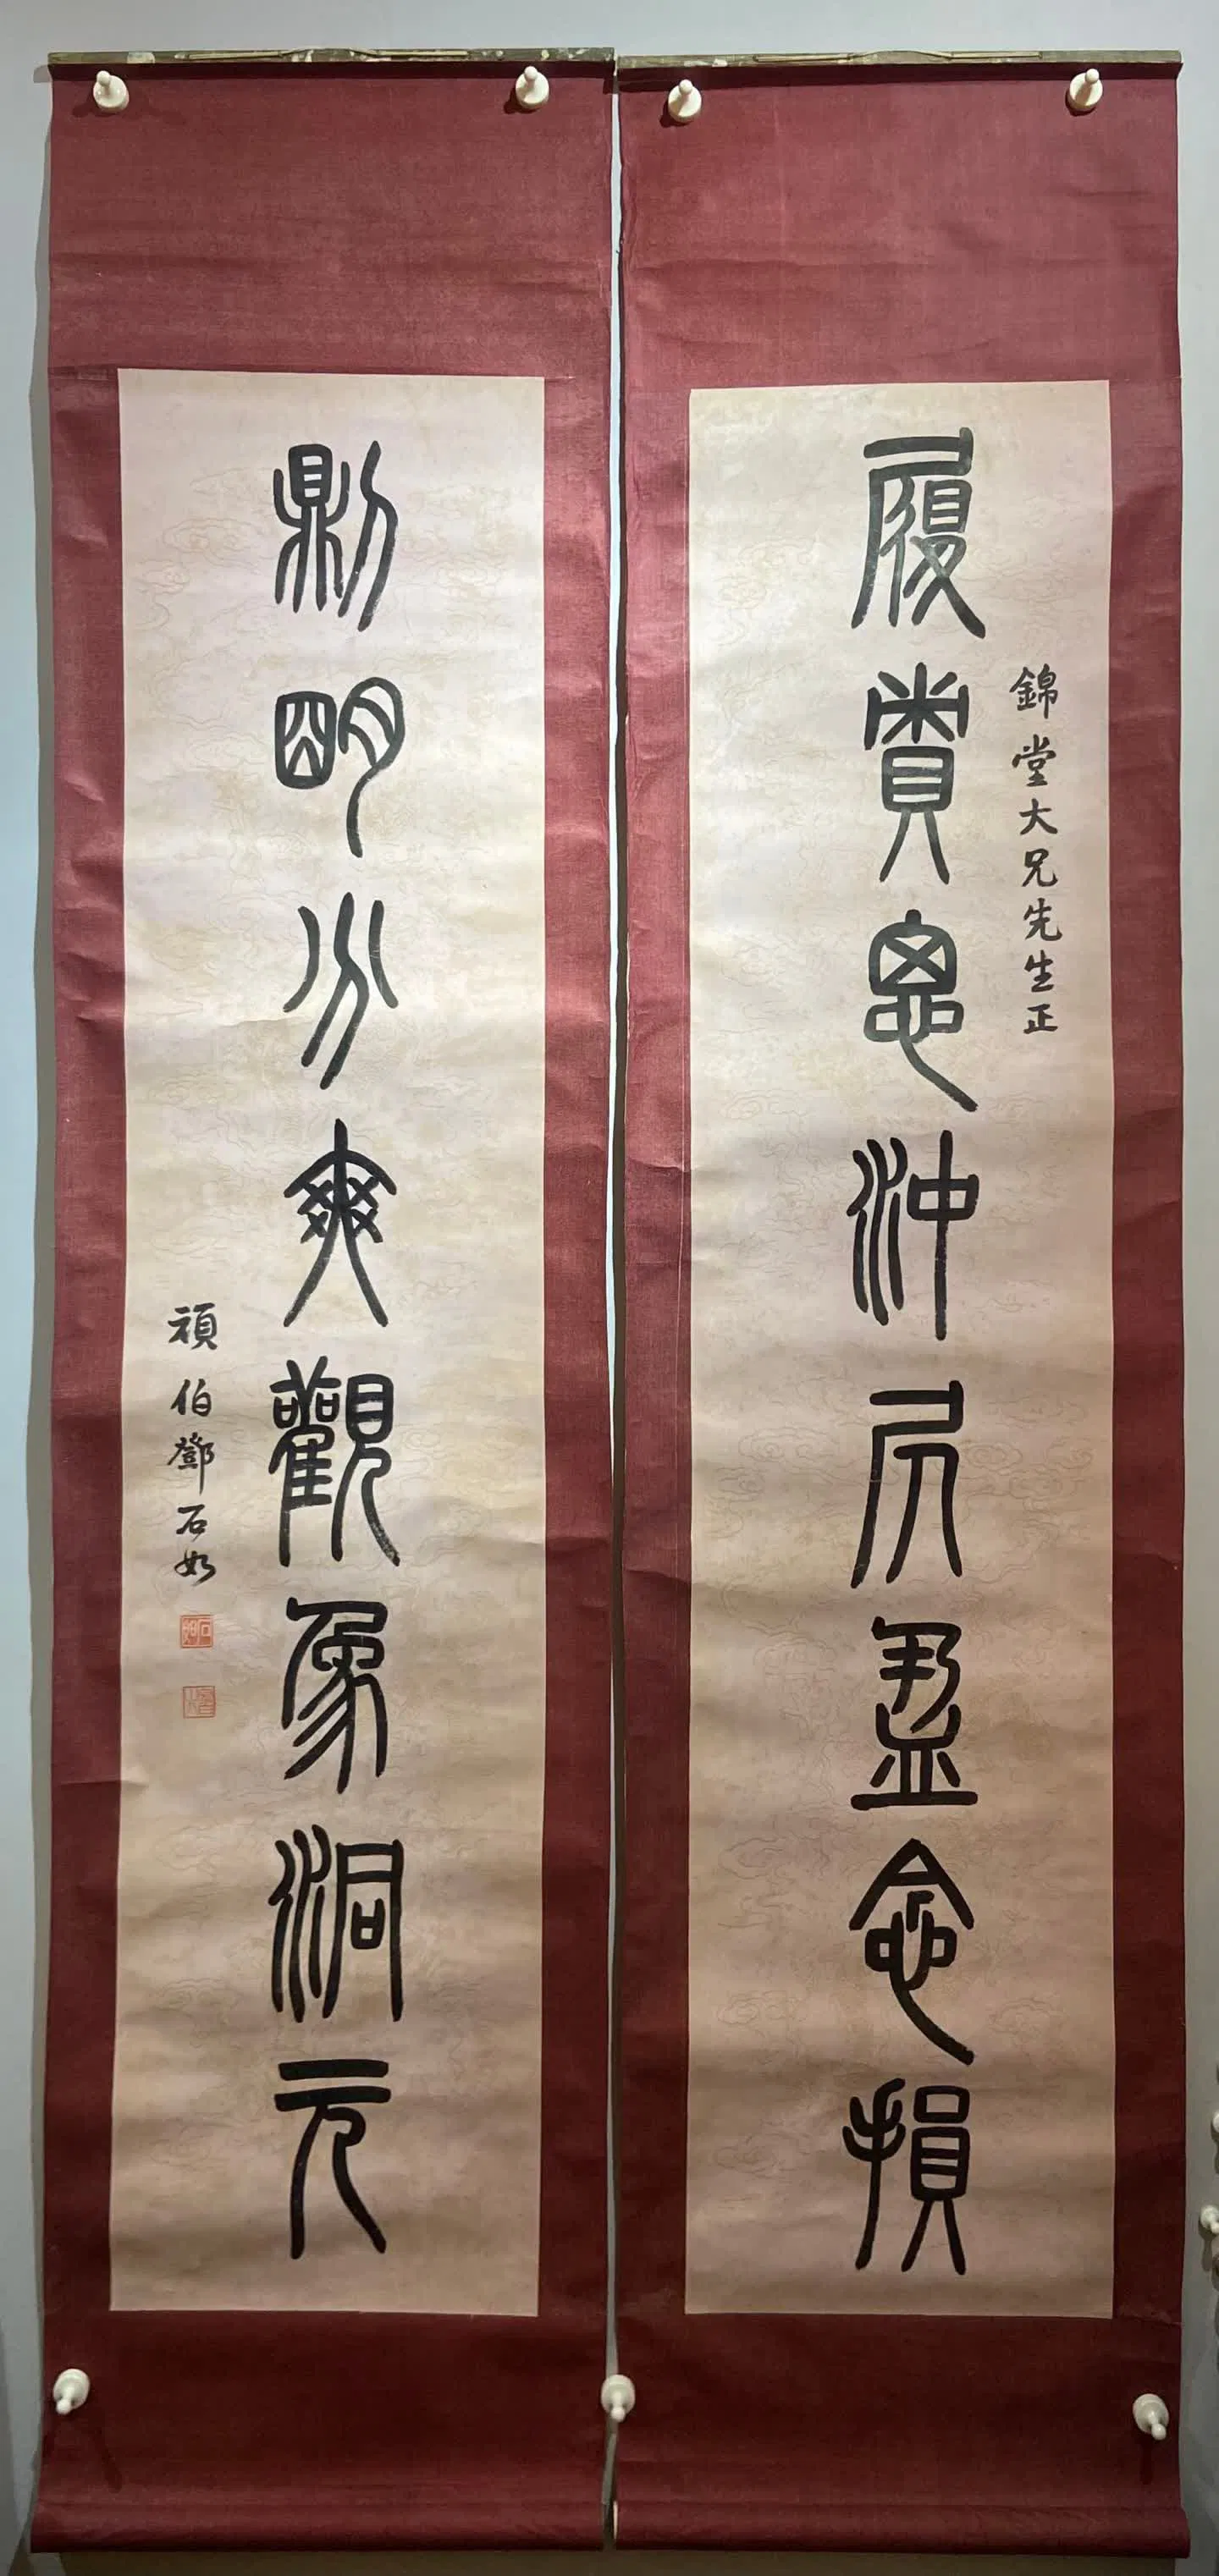 錦堂大兄先生正
履貴思沖凥盈念損
則明分爽觀象洞元
頑伯鄧石如
石如